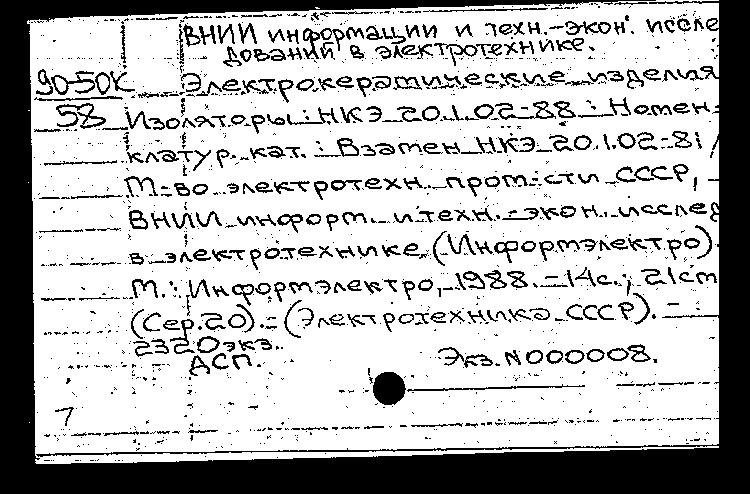 ВНИИ информации и техн.-экон. иссле
дований в электротехнике.
90-50К Электрокерамические изделия
58 Изоляторы: НКЭ 20.1.02-88: Номен-
клатур. кат.: Взамен НКЭ 20.1.02-81 /
М-во электротехн. пром-сти СССР,
ВНИИ информ. и техн.-экон. исслед
в электротехнике (Информэлектро).
М.: Информэлектро, 1988. - 14с.; 21см
(Сер.20). - (Электротехника СССР). -
2320экз.
АСП. Экз. N000008.
7